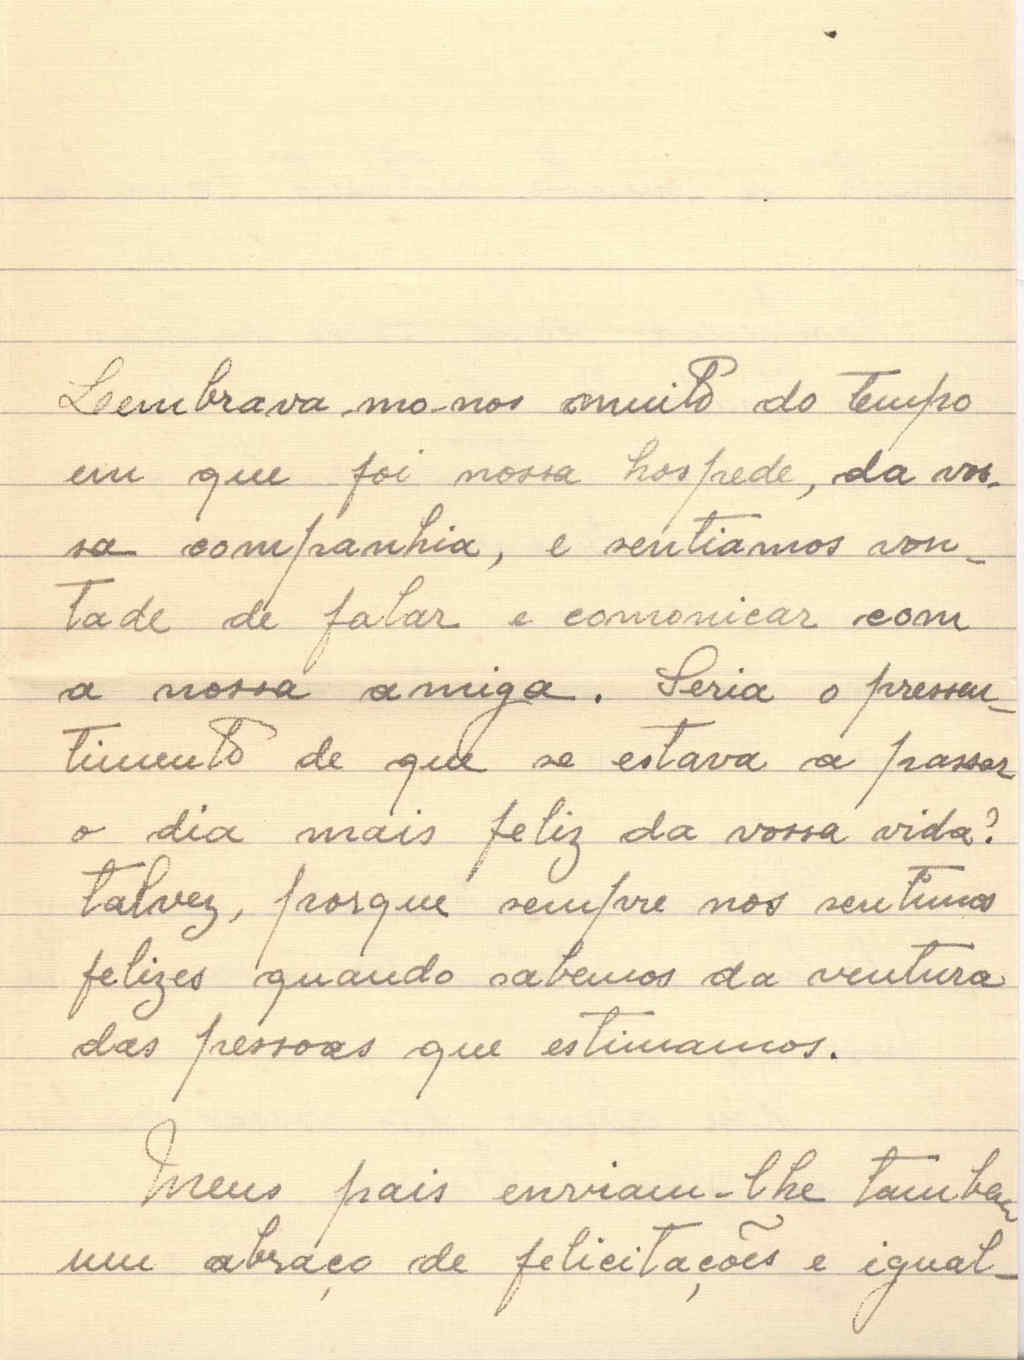 Lembrava-mo-nos muito do tempo
em que foi nossa hospede, da vos-
sa companhia, e sentiamos von-
tade de falar e comonicar com
a nossa amiga. Seria o pressen-
timento de que se estava a passar
o dia mais feliz da vossa vida?
talvez, porque sempre nos sentimos
felizes quando sabemos da ventura
das pessoas que estimamos.
Meus pais enviam-lhe tambem
um abraço de felicitações e igual-